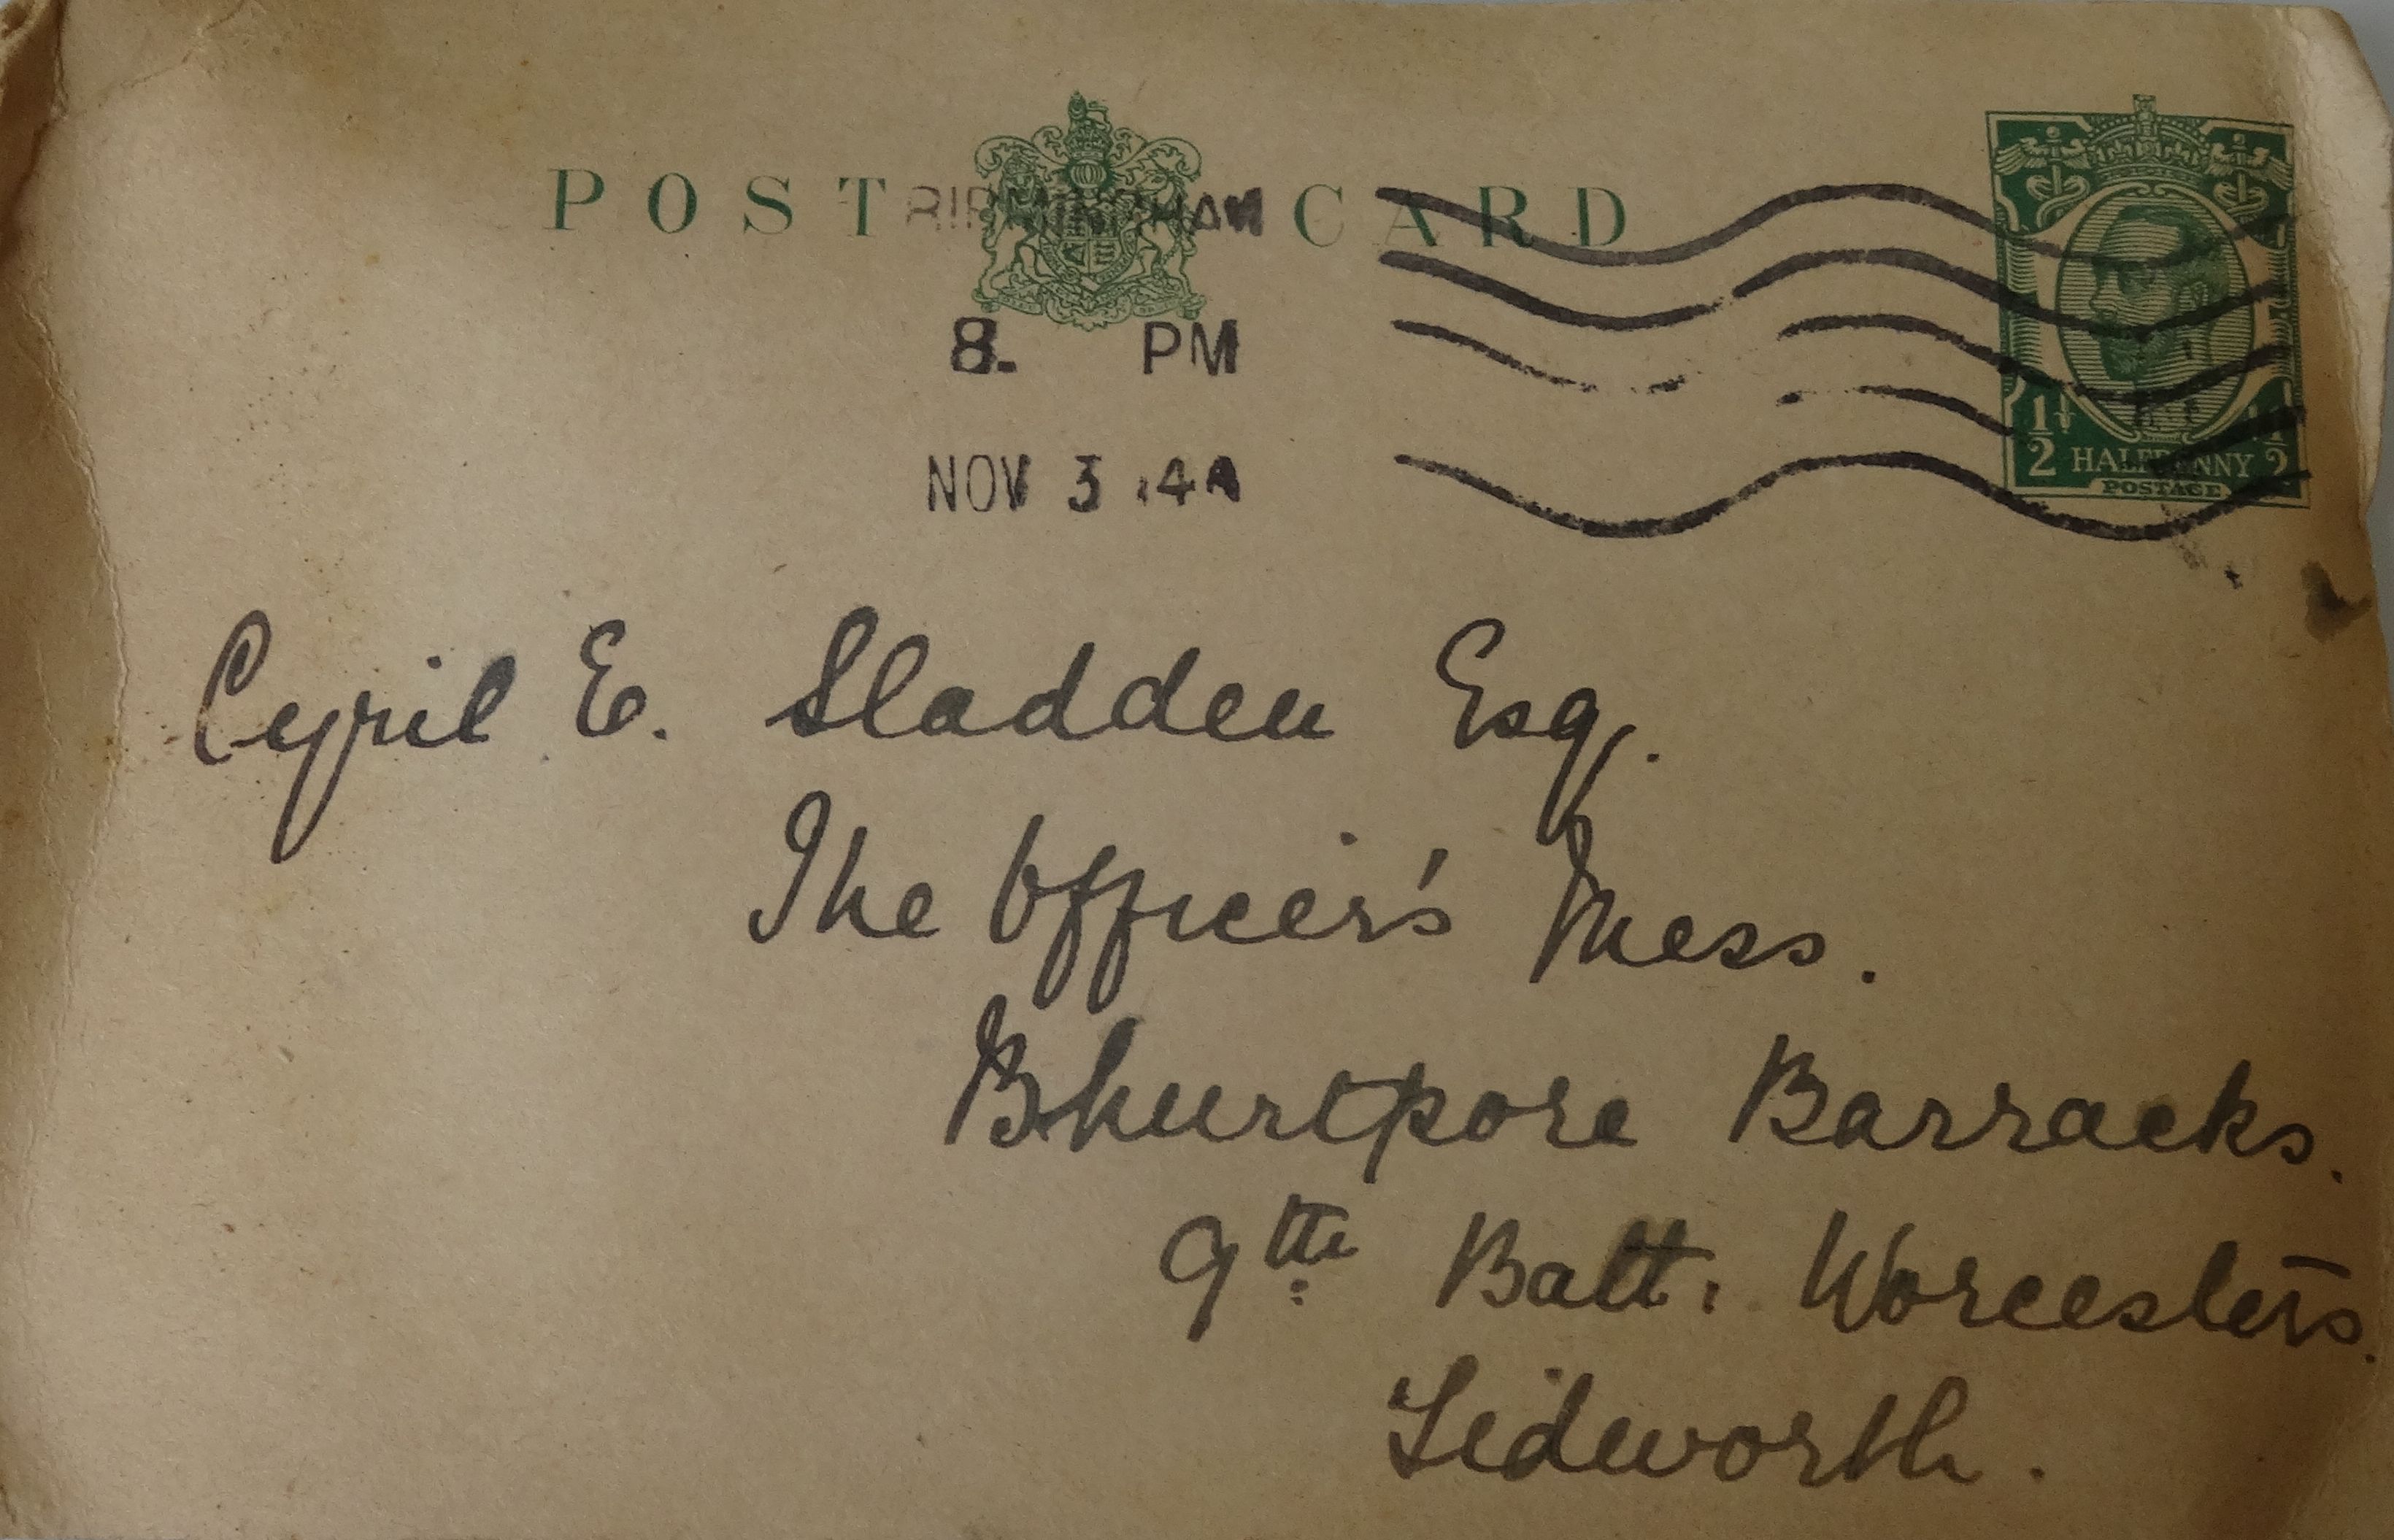 POST CARD
BIRMINGHAM
8. PM
NOV 3 14
½ HALFPENNY ½
POSTAGE
Cyril E. Sladden Esq.
The Officer's Mess.
Bhurtpore Barracks.
9th Batt. Worcesters.
Tidworth.